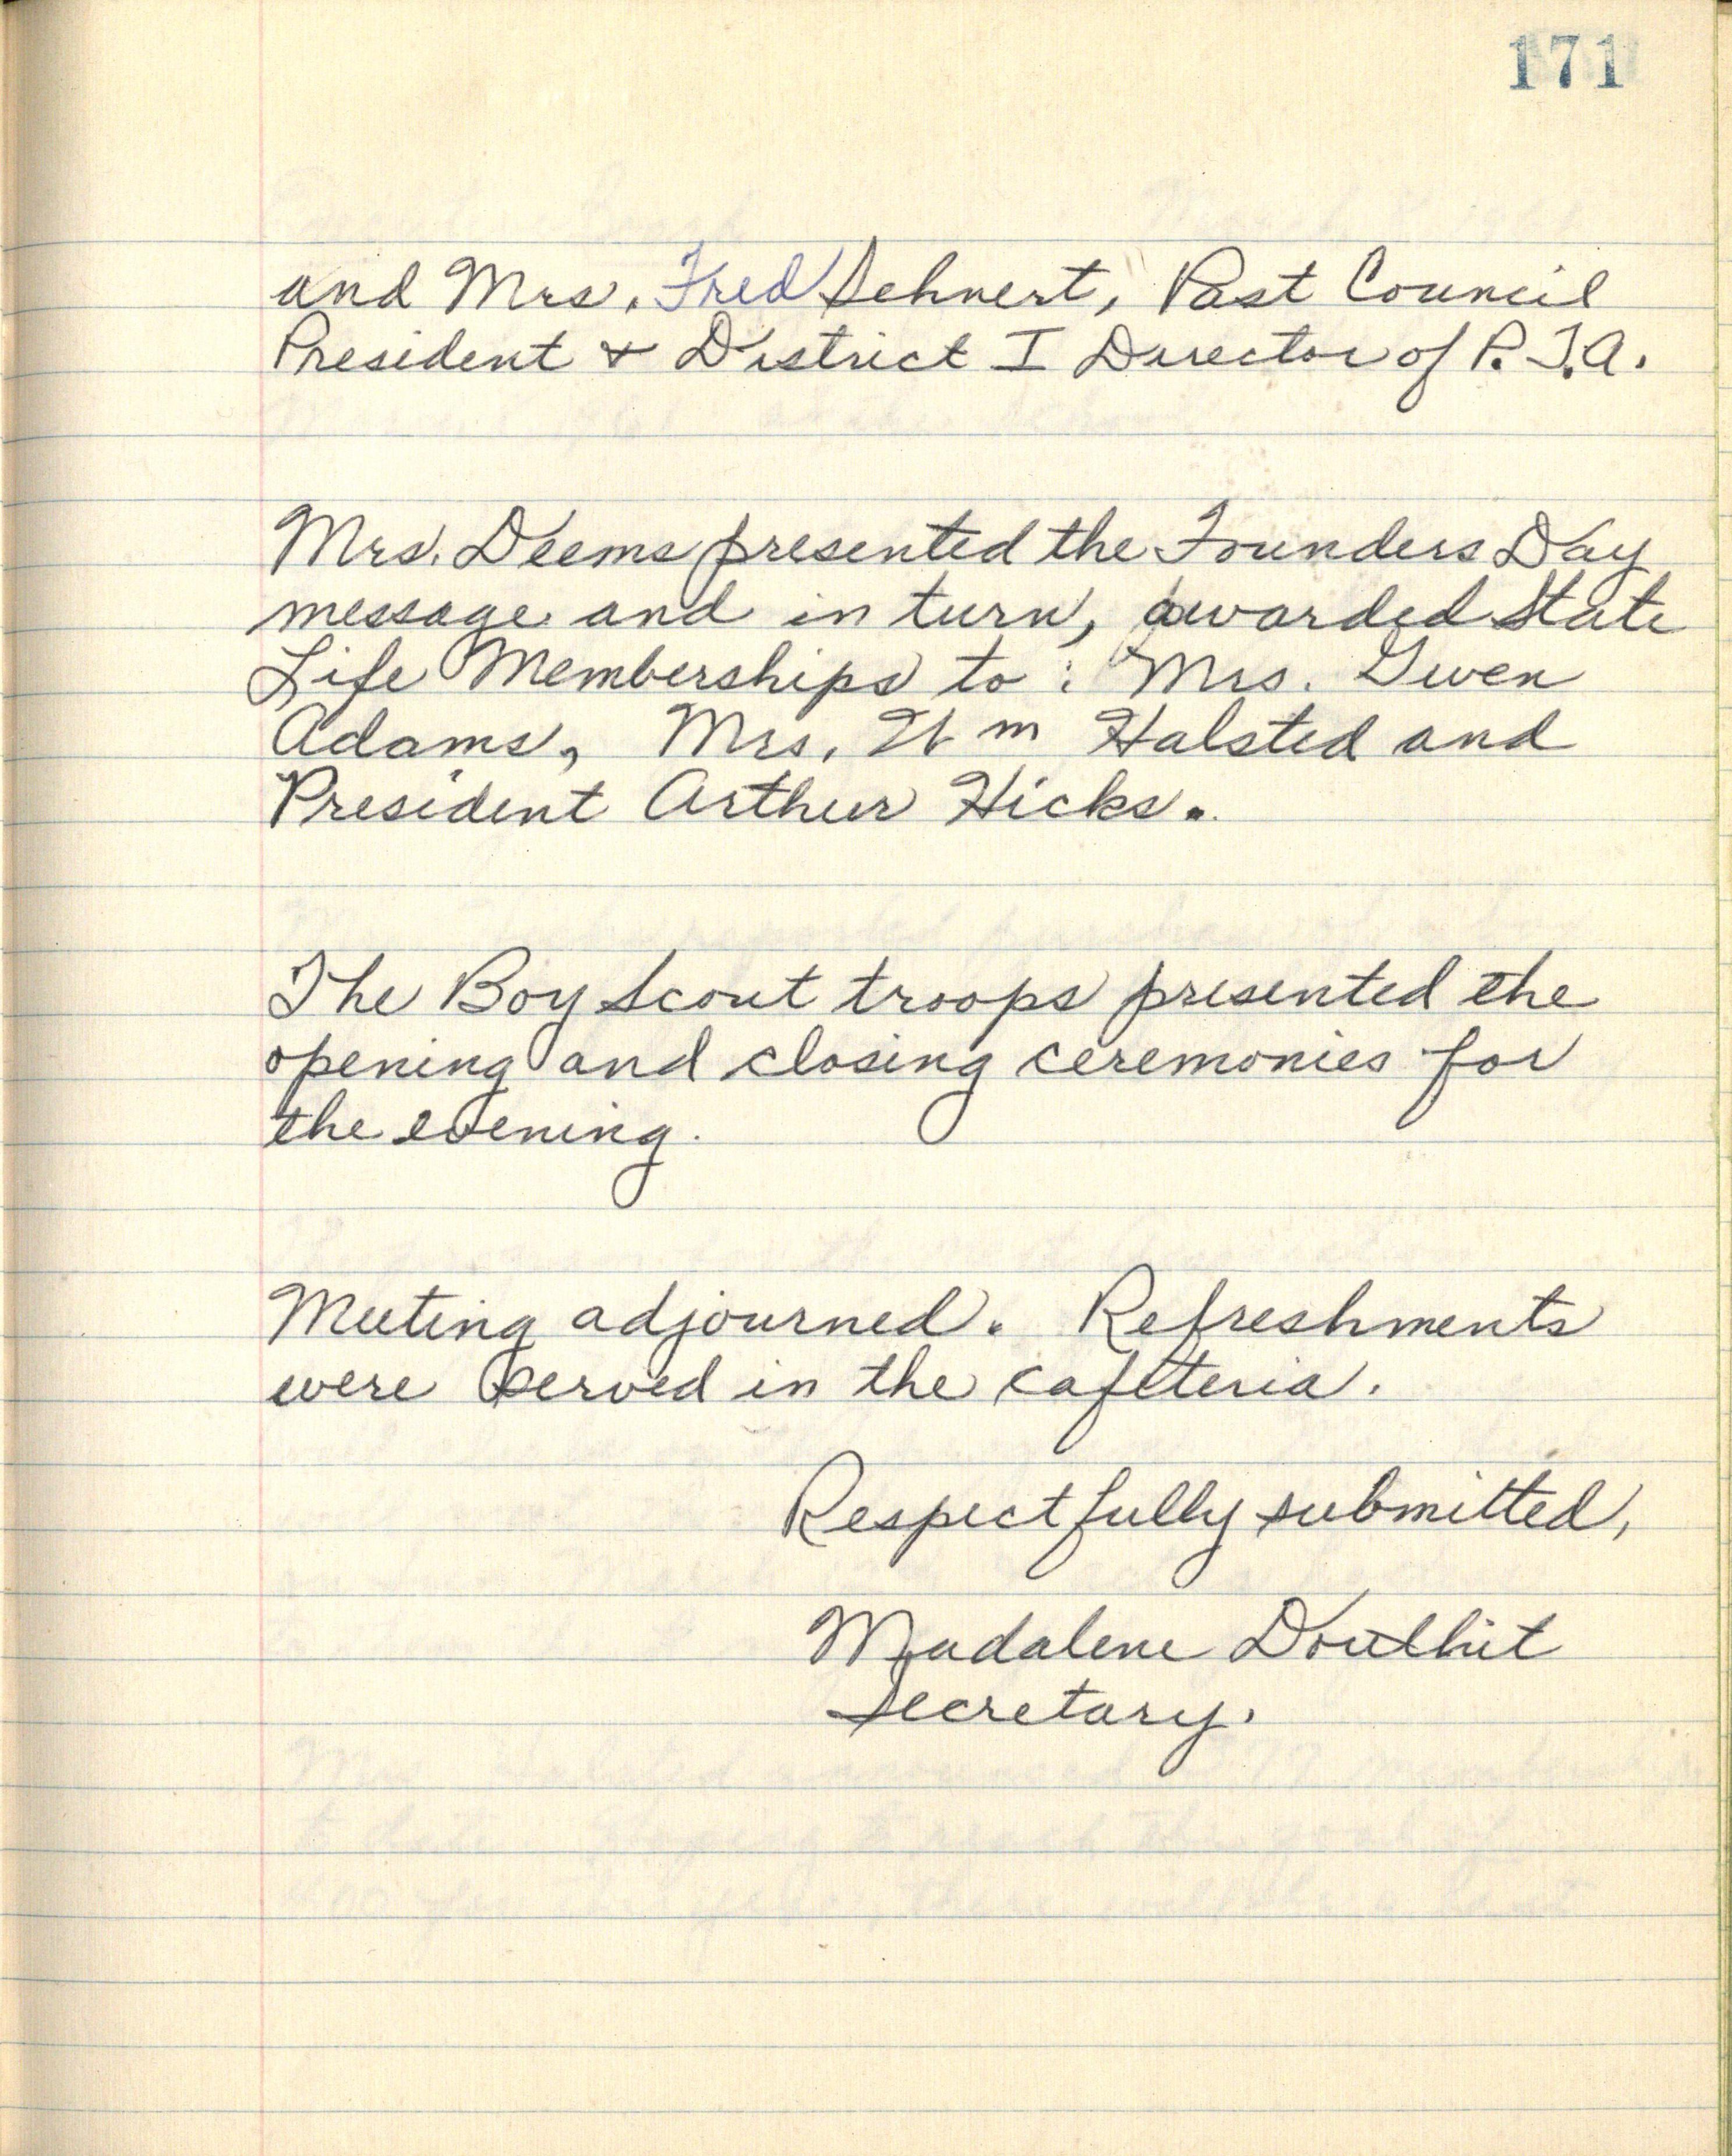 171
and Mrs. Fred Sehnert, Past Council
President & District I Director of P.T.A.
Mrs. Deems presented the Founders Day
message and in turn, awarded State
Life Memberships to: Mrs. Gwen
Adams, Mrs. Wm Halsted and
President Arthur Hicks.
The Boy Scout troops presented the
opening and closing ceremonies for
the evening.
Meeting adjourned. Refreshments
were served in the cafeteria.
Respectfully submitted,
Madalene Douthit
Secretary.